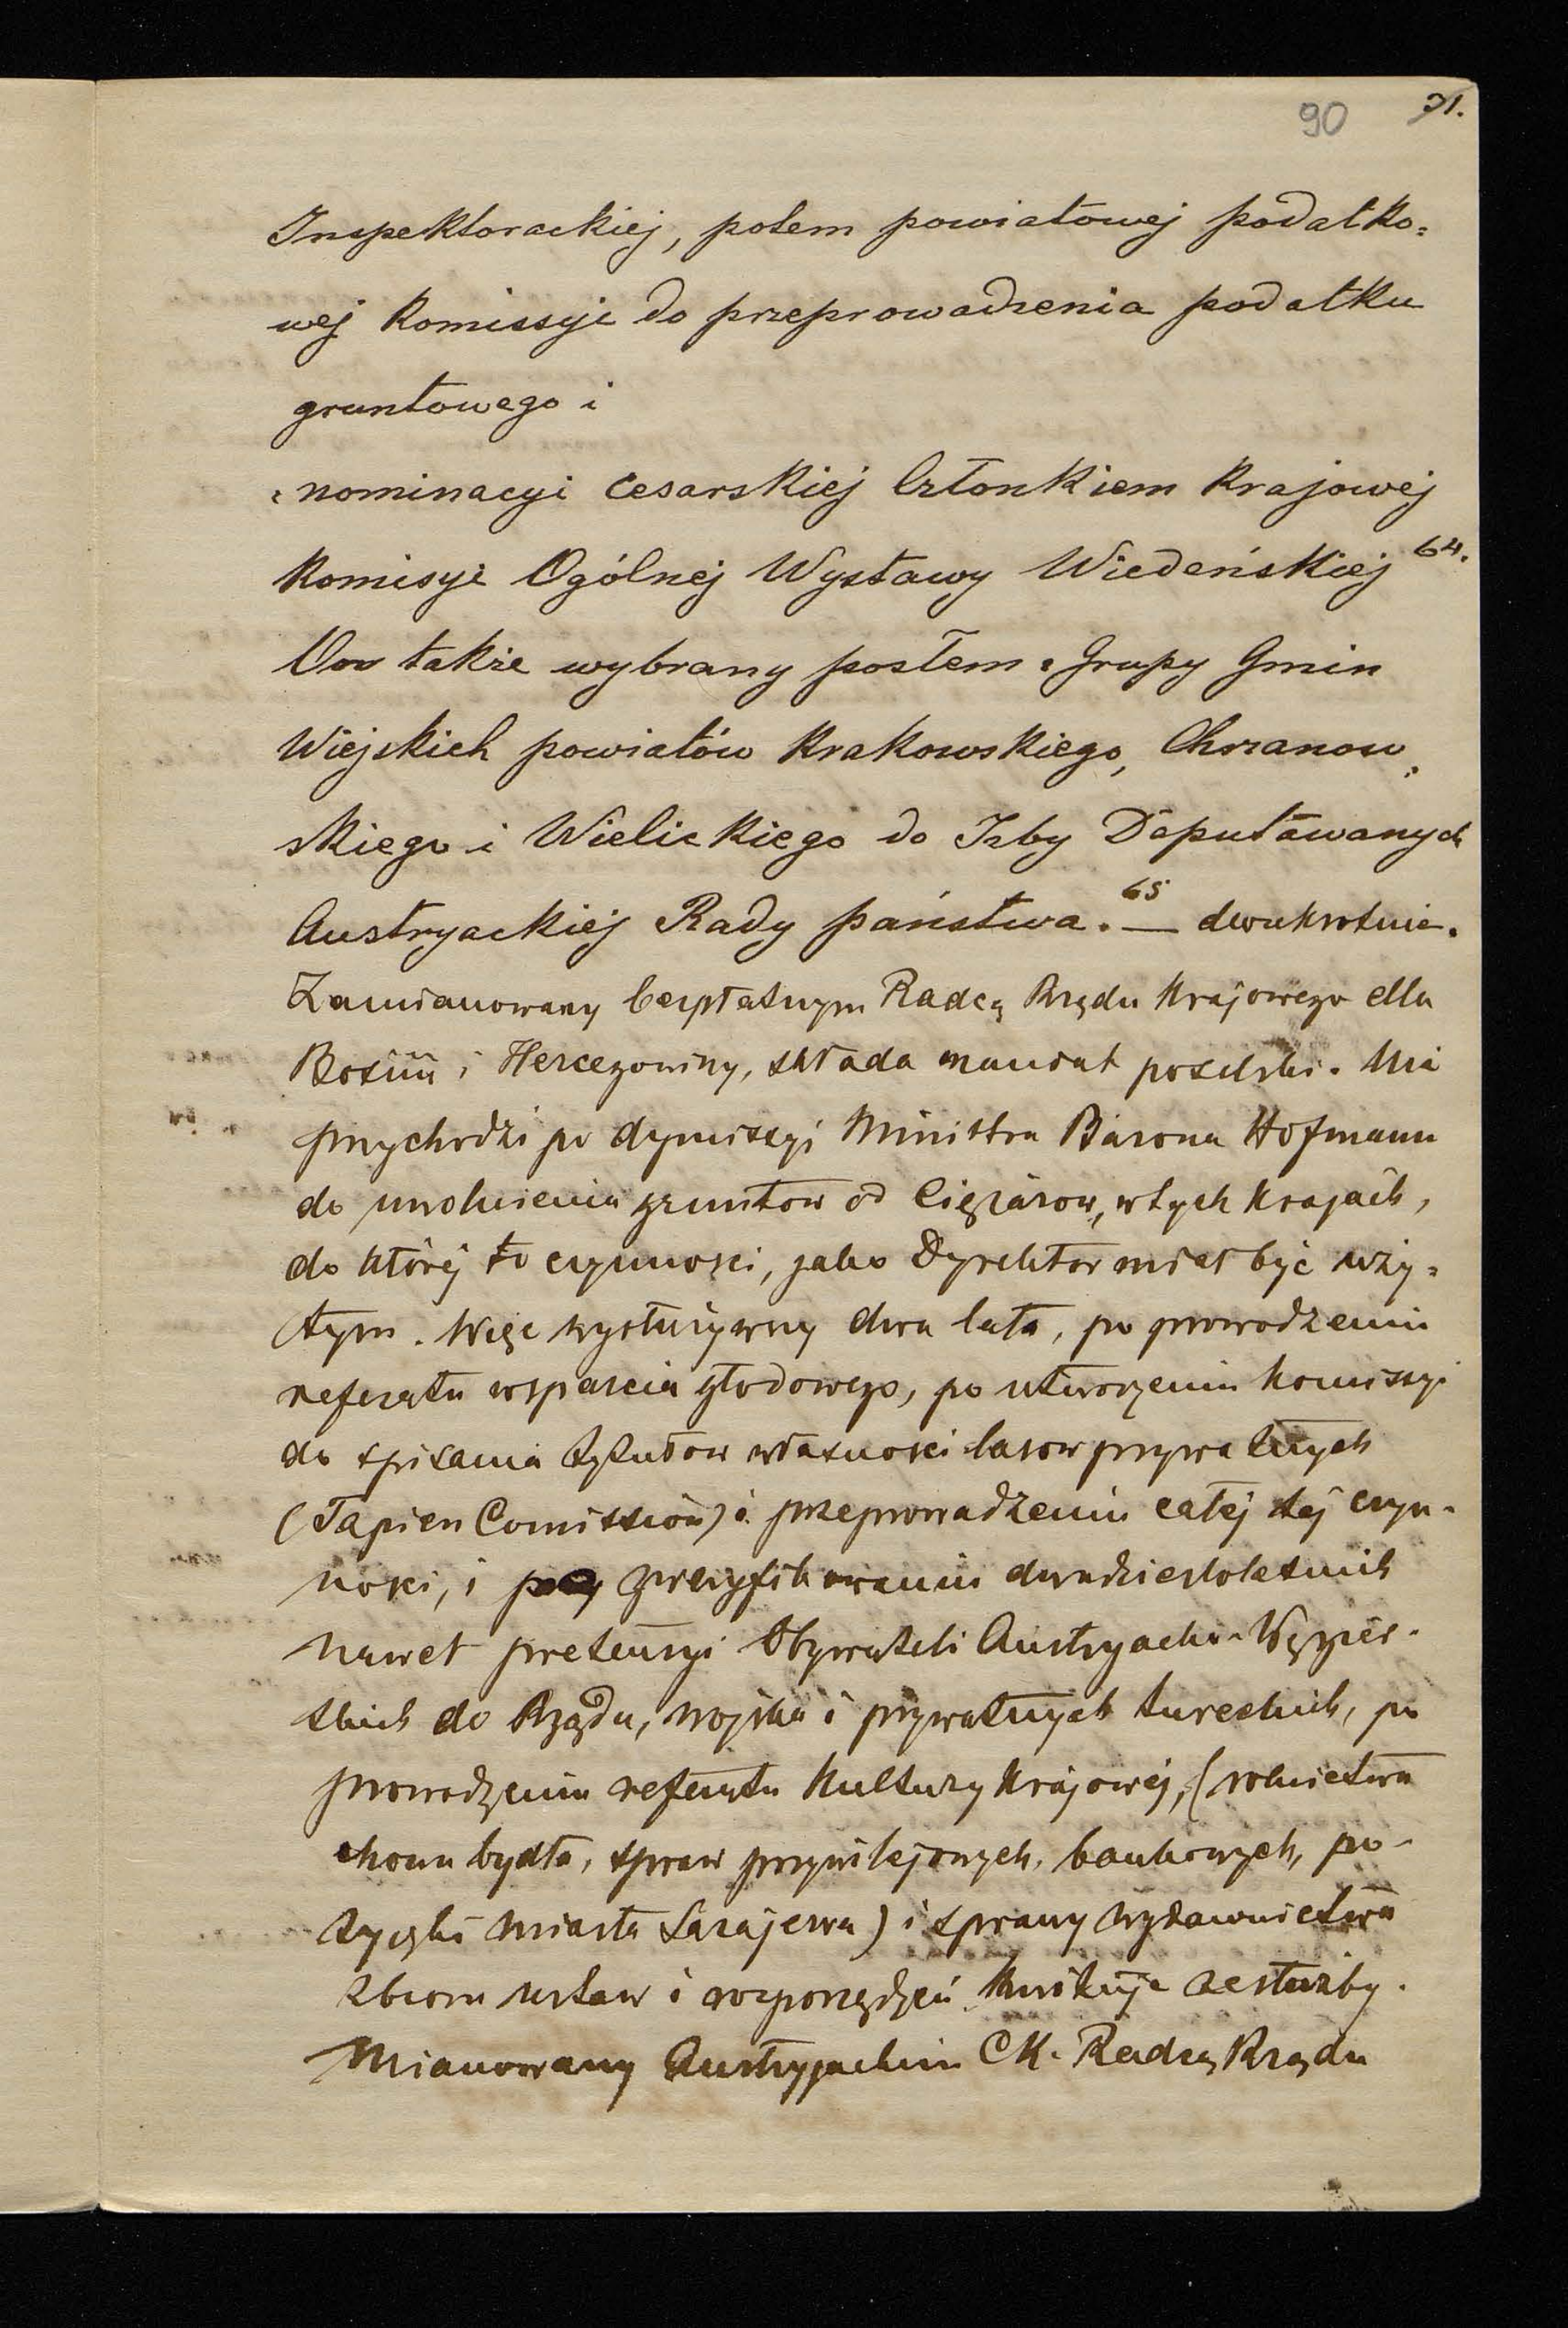 90 71.
Inspektorackiej, potem powiatowej podatko=
wej Komissyi do przeprowadzenia podatku
gruntowego i
z nominacyi Cesarskiej Członkiem Krajowej
Komisyi Ogólnej Wystawy Wiedeńskiej 64.
On także wybrany posłem z Grupy Gmin
Wiejskich powiatów Krakowskiego, Chrzanow=
skiego i Wielickiego do Izby Deputawanych
Austryackiej Rady państwa. 65 — dwukrotnie.
Zamianowany bezpłatnym Radcą Rządu Krajowego dla
Bośnii i Hercegowiny, składa mandat poselski. Nie
przychodzi po dymissyi Ministra Barona Hofmann
do uwolnienia gruntów od Ciężarow, w tych Krajach,
do której to czynności, jako Dyrektor miał być uży=
tym. Więc wysłużywszy dwa lata, po prowadzeniu
referatu wsparcia głodowego, po utworzeniu Komissyi
do spisania tytułow własności lasow prywatnych
(Tapien Comission) i przeprowadzeniu całej tej czyn-
ności, i zweryfikowaniu dwudziestoletnich
nawet pretensyi Obywateli Austryacko-Węgier-
skich do Rządu, wojska i prywatnych tureckich, po
prowadzeniu referatu Kultury Krajowej, (rolnictwa
chowu bydła, spraw przywilejowych, bankowych, po-
życzki miasta Sarajewa) i sprawy wydawnictwa
zbioru ustaw i rozporządzeń, kwituje ze służby.
Mianowany Austryjackim CK. Radcą Rządu